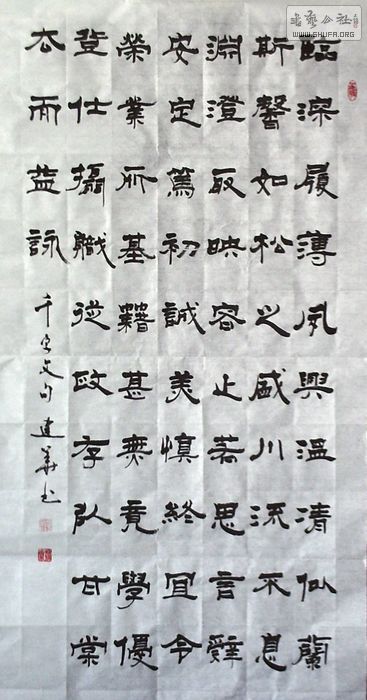 臨深履薄夙興溫清似蘭
斯馨如松之盛川流不息
淵澄取映容止若思言辭
安定篤初誠美慎終宜令
榮業所基籍甚無竟學優
登仕攝職從政存以甘棠
去而益詠
千字文句 建華書
書藝公社
WWW.SHUFA.ORG